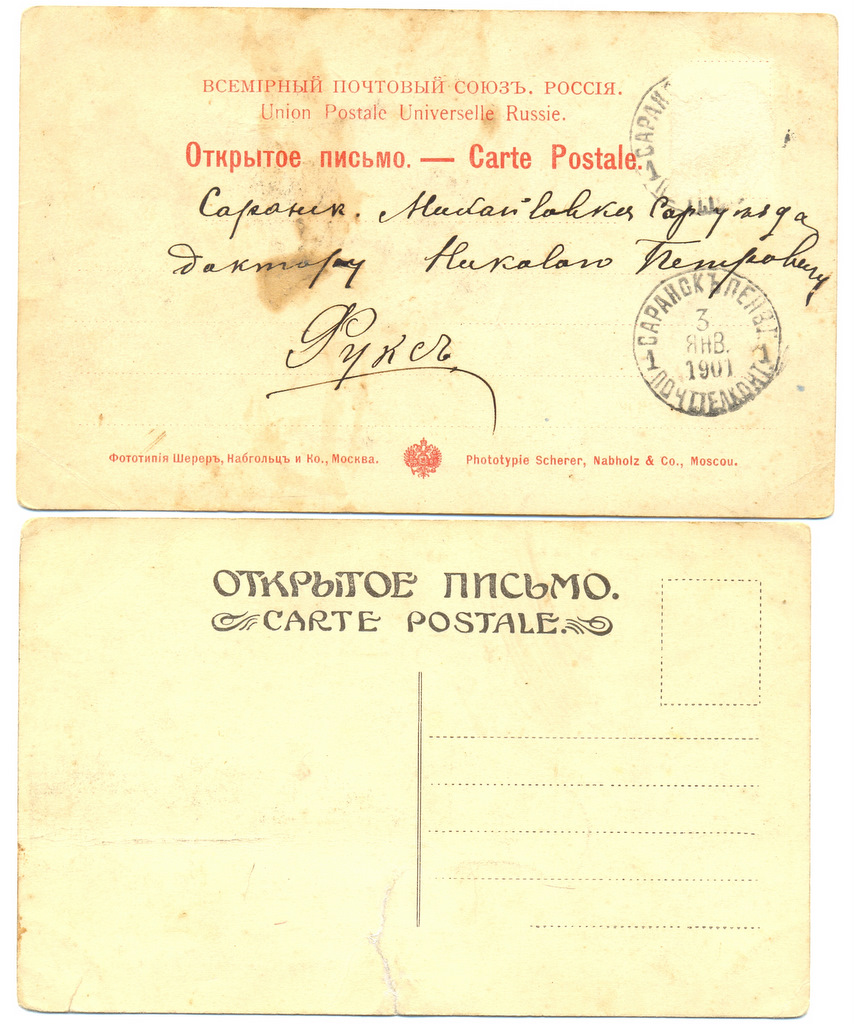 ВСЕМІРНЫЙ ПОЧТОВЫЙ СОЮЗЪ. РОССІЯ.
Union Postale Universelle Russie.
Открытое письмо. — Carte Postale.
САРАНСК
1
Саранск.
доктору Николаю Петровичу
Фуксъ
САРАНСКЪ ПЕНЗ.
3
ЯНВ.
1901
1 1
ПОЧ. ТЕЛ. КОНТ.
Фототипія Шереръ, Набгольцъ и Ко., Москва.
Phototypie Scherer, Nabholz & Co., Moscou.
ОТКРЫТОЕ ПИСЬМО.
CARTE POSTALE.